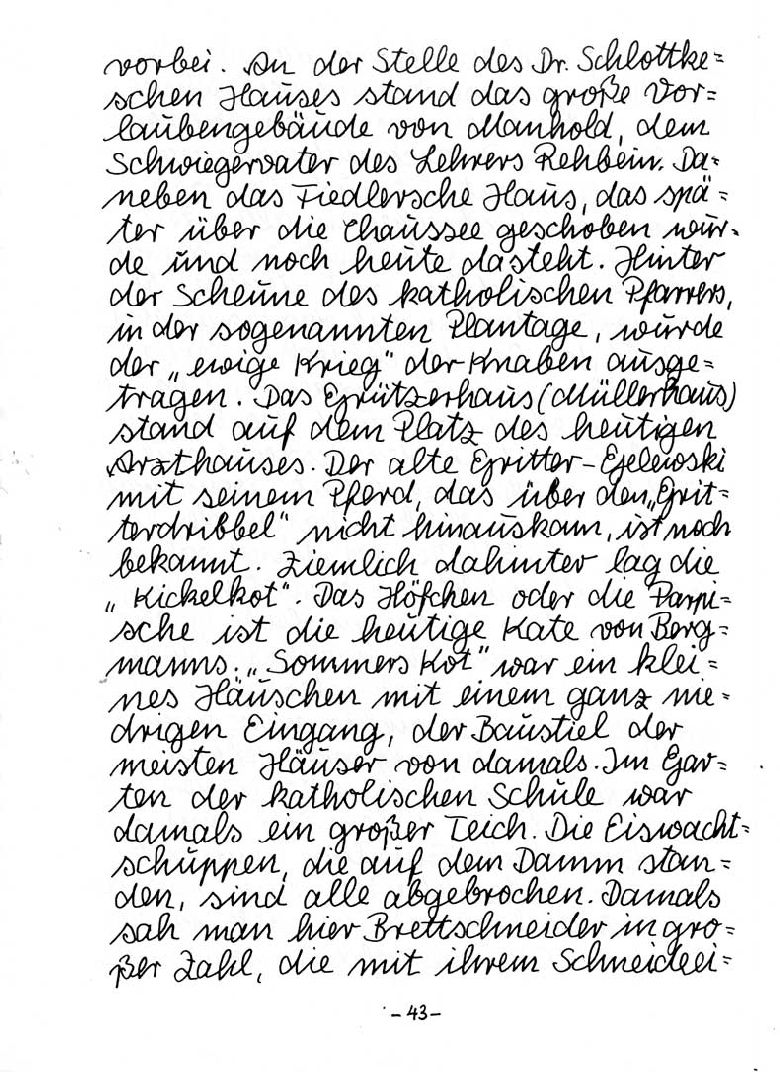 vorbei. An der Stelle des Dr. Schlottke=
schen Hauses stand das große Vor=
laubengebäude von Manhold, dem
Schwiegervater des Lehrers Rehbein. Da=
neben das Fiedlersche Haus, das spä=
ter über die Chaussee geschoben wur=
de und noch heute dasteht. Hinter
der Scheune des katholischen Pfarrers,
in der sogenannten Plantage, wurde
der „ewige Krieg“ der Knaben ausge=
tragen. Das Grützerhaus (Müllerhaus)
stand auf dem Platz des heutigen
Arzthauses. Der alte Gritter-Gelewski
mit seinem Pferd, das über den „Grit=
terdribbel“ nicht hinauskam, ist noch
bekannt. Ziemlich dahinter lag die
„Kickelkot“. Das Höfchen oder die Parpi=
sche ist die heutige Kate von Berg=
manns. „Sommers Kot“ war ein klei=
nes Häuschen mit einem ganz nie=
drigen Eingang, der Baustiel der
meisten Häuser von damals. Im Gar=
ten der katholischen Schule war
damals ein großer Teich. Die Eiswacht=
schuppen, die auf dem Damm stan=
den, sind alle abgebrochen. Damals
sah man hier Brettschneider in gro=
ßer Zahl, die mit ihrem Schneidei=
-43-